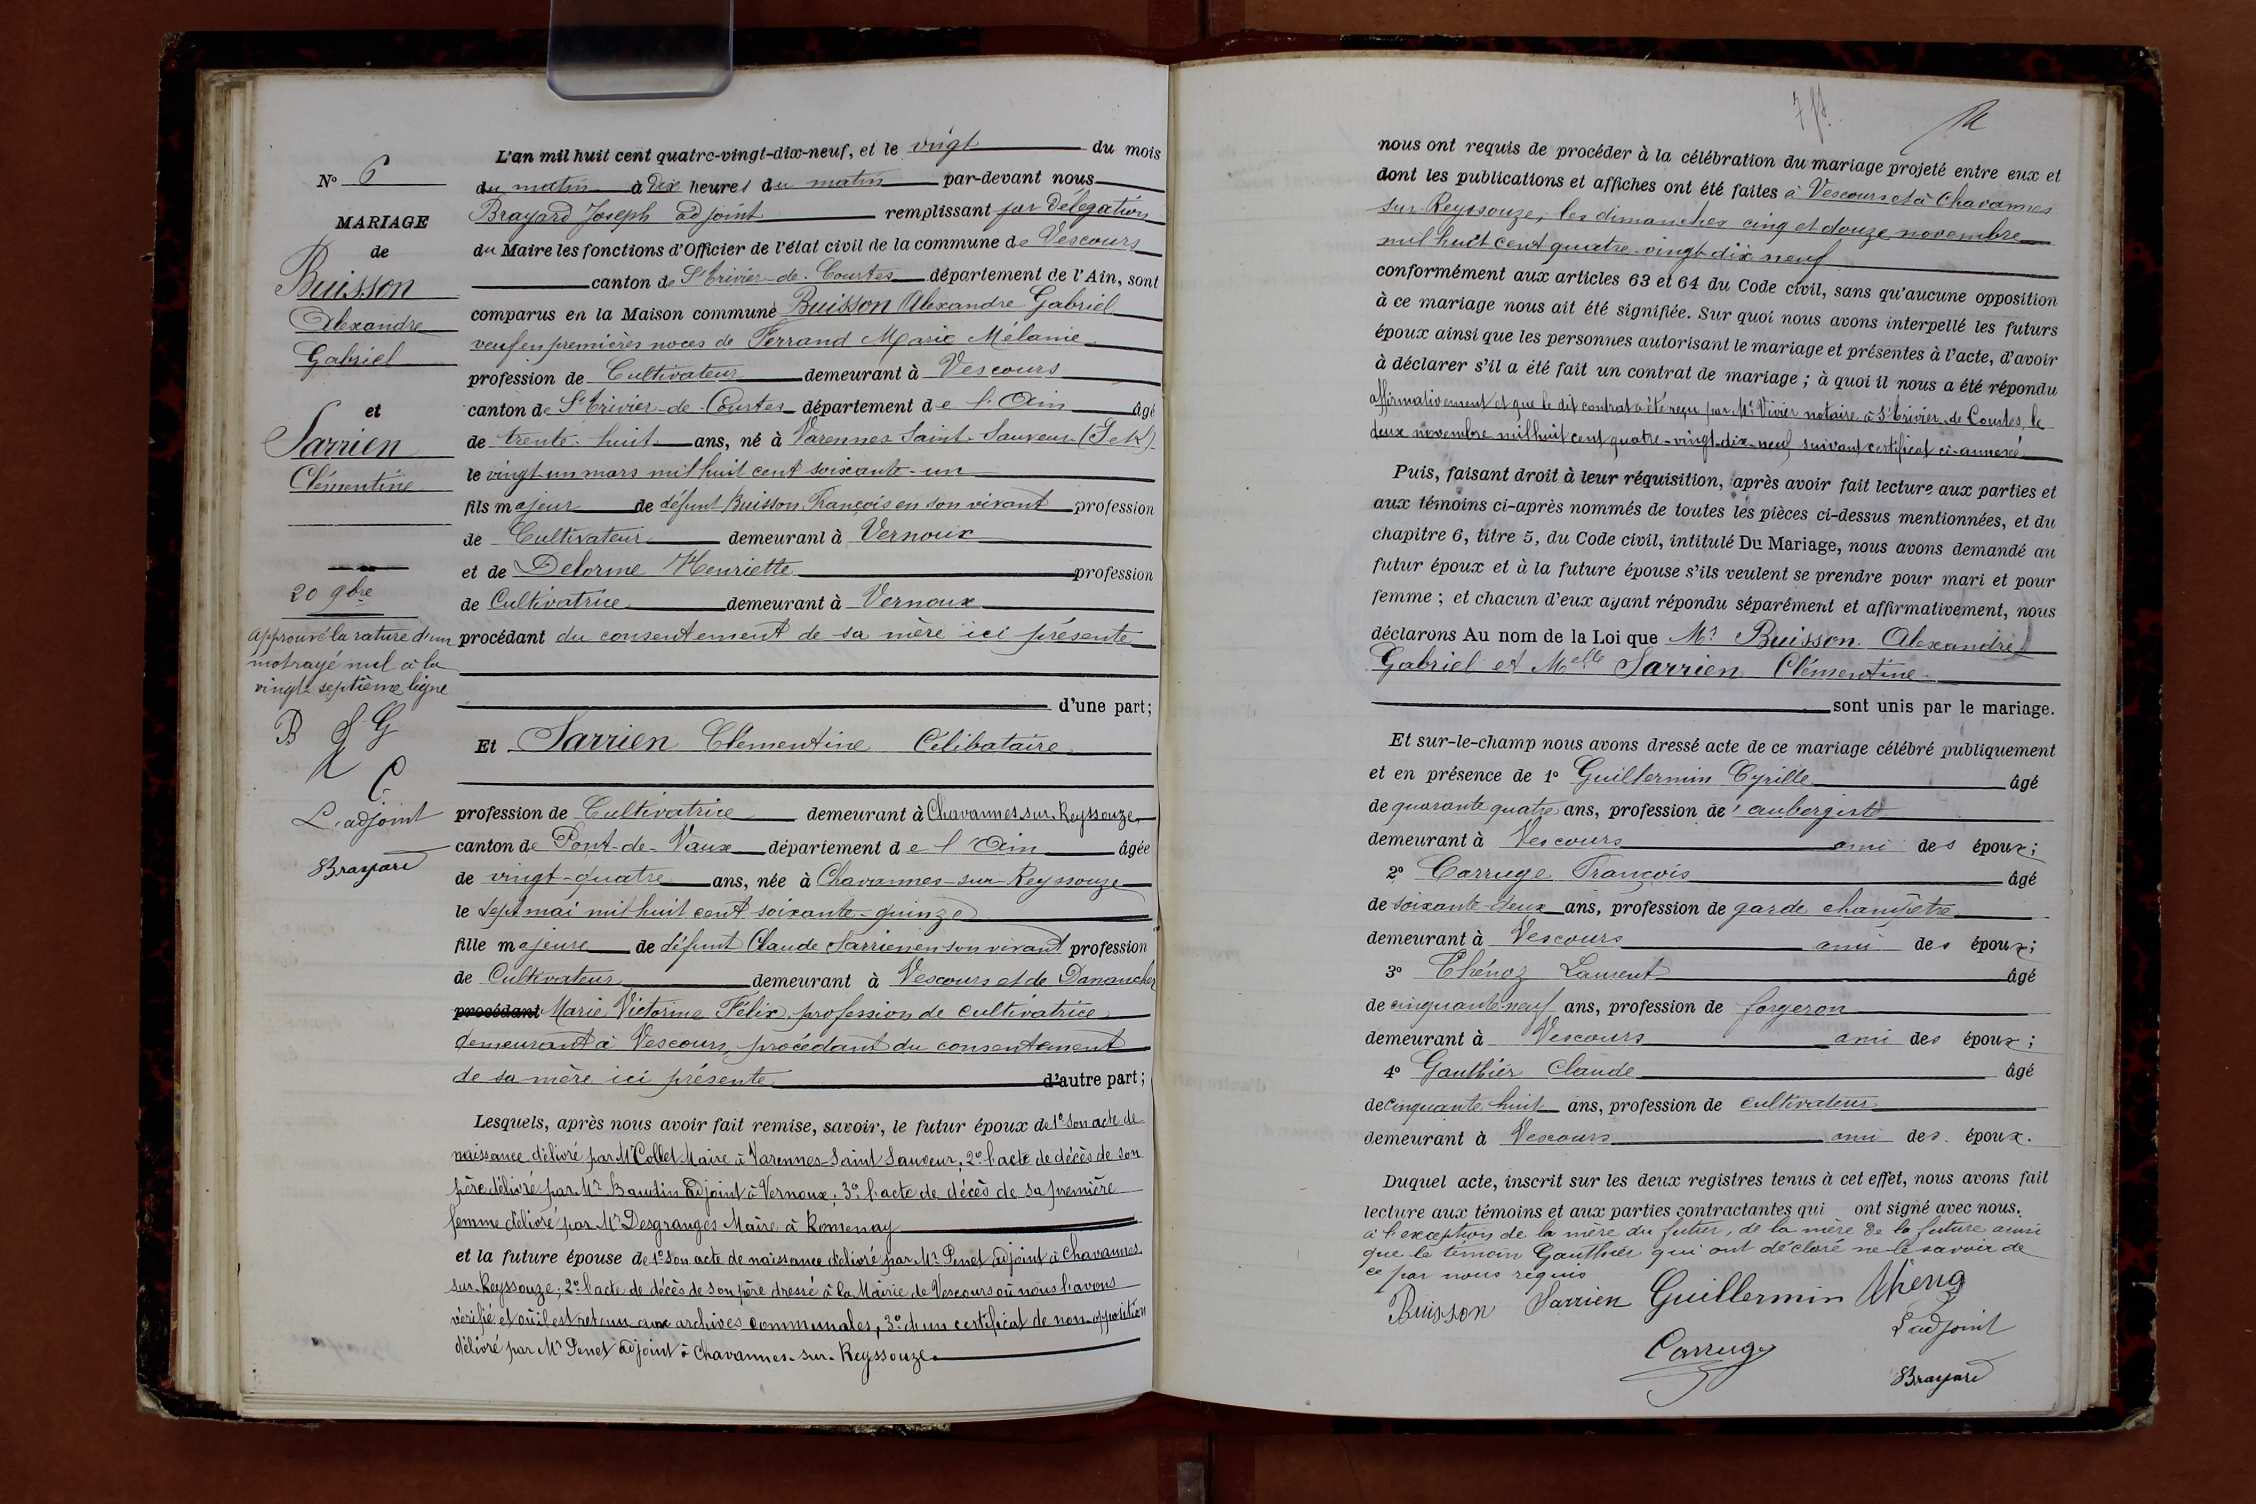 N° 6
MARIAGE
de
Buisson
Alexandre
Gabriel
et
Sarrien
Clémentine
20 9bre
approuvé la rature d'un
mot rayé nul à la
vingt septième ligne
B S G
C
L'adjoint
Brayard
L'an mil huit cent quatre-vingt-dix-neuf, et le vingt du mois
du matin à dix heures du matin par-devant nous
Brayard Joseph adjoint remplissant par délégation
du Maire les fonctions d'Officier de l'état civil de la commune de Vescours
canton de St Trivier-de-Courtes département de l'Ain, sont
comparus en la Maison commune Buisson Alexandre Gabriel
veuf en premières noces de Ferrand Marie Mélanie
profession de Cultivateur demeurant à Vescours
canton de St Trivier-de-Courtes département de l'Ain âgé
de trente-huit ans, né à Varennes Saint-Sauveur (S et L)
le vingt-un mars mil huit cent soixante-un
fils majeur de défunt Buisson François en son vivant profession
de Cultivateur demeurant à Vernoux
et de Delorme Henriette profession
de Cultivatrice demeurant à Vernoux
procédant du consentement de sa mère ici présente
d'une part;
Et Sarrien Clémentine Célibataire
profession de Cultivatrice demeurant à Chavannes-sur-Reyssouze
canton de Pont-de-Vaux département de l'Ain âgée
de vingt-quatre ans, née à Chavannes-sur-Reyssouze
le sept mai mil huit cent soixante-quinze
fille majeure de défunt Claude Sarrien en son vivant profession
de Cultivateur demeurant à Vescours et de Danancher
procédant Marie Victorine Félix, profession de cultivatrice
demeurant à Vescours, procédant du consentement
de sa mère ici présente d'autre part;
Lesquels, après nous avoir fait remise, savoir, le futur époux de 1° son acte de
naissance délivré par Mr Collet Maire à Varennes-Saint Sauveur, 2° l'acte de décès de son
père délivré par Mr Baudin adjoint à Vernoux; 3° l'acte de décès de sa première
femme délivré par Mr Desgranges Maire à Romenay
et la future épouse de 1° son acte de naissance délivré par Mr Penet adjoint à Chavannes
sur-Reyssouze; 2° l'acte de décès de son père dressé à la Mairie de Vescours où nous l'avons
vérifié et où il est retenu aux archives communales, 3° d'un certificat de non-opposition
délivré par Mr Penet adjoint à Chavannes-sur-Reyssouze.
nous ont requis de procéder à la célébration du mariage projeté entre eux et
dont les publications et affiches ont été faites à Vescours et à Chavannes
sur Reyssouze, les dimanches cinq et douze novembre
mil huit cent quatre-vingt-dix neuf
conformément aux articles 63 et 64 du Code civil, sans qu'aucune opposition
à ce mariage nous ait été signifiée. Sur quoi nous avons interpellé les futurs
époux ainsi que les personnes autorisant le mariage et présentes à l'acte, d'avoir
à déclarer s'il a été fait un contrat de mariage; à quoi il nous a été répondu
affirmativement et que le dit contrat a été reçu par Mr Vivier notaire à St Trivier-de Courtes, le
deux novembre mil huit cent quatre-vingt-dix-neuf suivant certificat ci-annexé
Puis, faisant droit à leur réquisition, après avoir fait lecture aux parties et
aux témoins ci-après nommés de toutes les pièces ci-dessus mentionnées, et du
chapitre 6, titre 5, du Code civil, intitulé Du Mariage, nous avons demandé au
futur époux et à la future épouse s'ils veulent se prendre pour mari et pour
femme; et chacun d'eux ayant répondu séparément et affirmativement, nous
déclarons Au nom de la Loi que Mr Buisson Alexandre
Gabriel et Melle Sarrien Clémentine
sont unis par le mariage.
Et sur-le-champ nous avons dressé acte de ce mariage célébré publiquement
et en présence de 1° Guillermin Cyrille âgé
de quarante quatre ans, profession de aubergiste
demeurant à Vescours ami des époux;
2° Carruge François âgé
de soixante-deux ans, profession de garde champêtre
demeurant à Vescours ami des époux;
3° Thénoz Laurent âgé
de cinquante-neuf ans, profession de forgeron
demeurant à Vescours ami des époux;
4° Gauthier Claude âgé
de cinquante huit ans, profession de cultivateur
demeurant à Vescours ami des époux.
Duquel acte, inscrit sur les deux registres tenus à cet effet, nous avons fait
lecture aux témoins et aux parties contractantes qui ont signé avec nous.
à l'exception de la mère du futur, de la mère de la future ainsi
que le témoin Gauthier qui ont déclaré ne le savoir de
ce par nous requis
Buisson Sarrien Guillermin Thenoz
L'adjoint
Carruge
Brayard